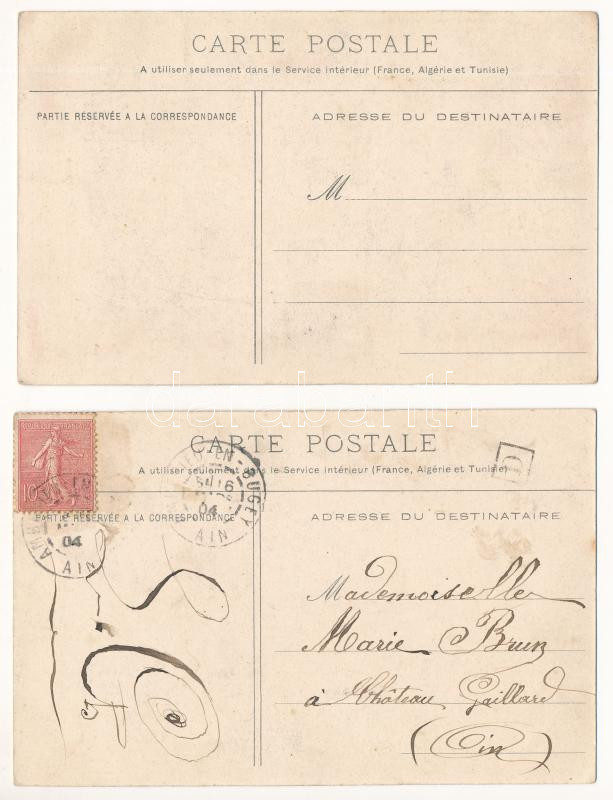 CARTE POSTALE
A utiliser seulement dans le Service intérieur (France, Algérie et Tunisie)
PARTIE RÉSERVÉE A LA CORRESPONDANCE
ADRESSE DU DESTINATAIRE
M
darabanth
CARTE POSTALE
A utiliser seulement dans le Service intérieur (France, Algérie et Tunisie)
PARTIE RÉSERVÉE A LA CORRESPONDANCE
ADRESSE DU DESTINATAIRE
10
04
AIN
EN-BUGEY
16
04
AIN
D
Mademoiselle
Marie Brun
à Château Gaillard
(Ain)